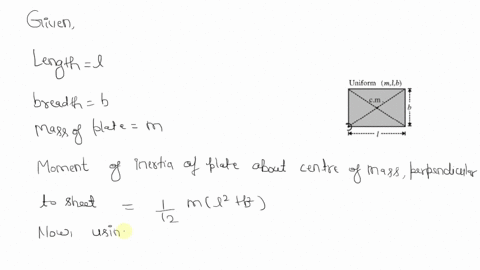 Given,
Length = l
breadth = b
Mass of plate = m
Uniform (m,l,b)
c.m.
b
l
Moment of inertia of plate about centre of mass, perpendicular
to sheet = 1/12 m(l² + b²)
Now, usin